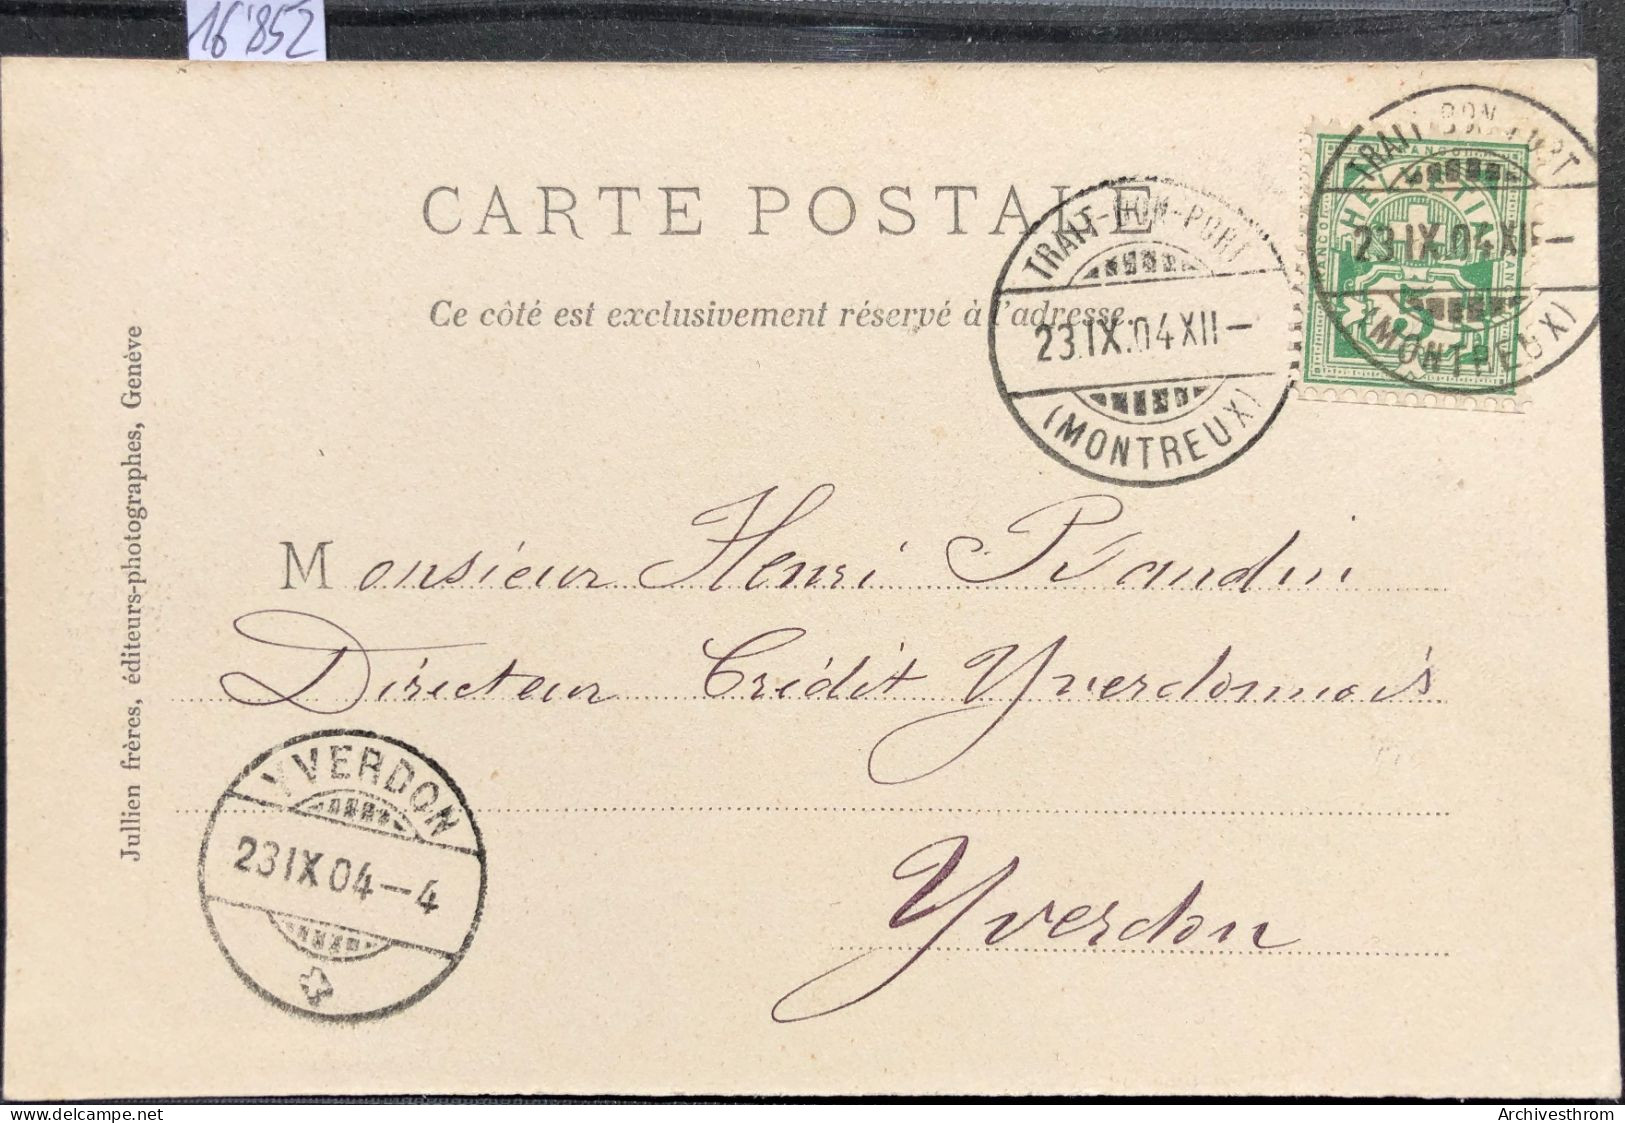 16'852
CARTE POSTALE
Ce côté est exclusivement réservé à l'adresse.
TRAIT-BON-PORT
23.IX.04 XII-
(MONTREUX)
TRAIT-BON-PORT
23 IX.04 XII-
(MONTREUX)
HELVETIA
FRANCO
5
Monsieur Henri
Directeur Crédit Yverdonnois
Yverdon
YVERDON
23 IX 04-4
Jullien frères, éditeurs-photographes, Genève
delcampe.net
Archivesthrom